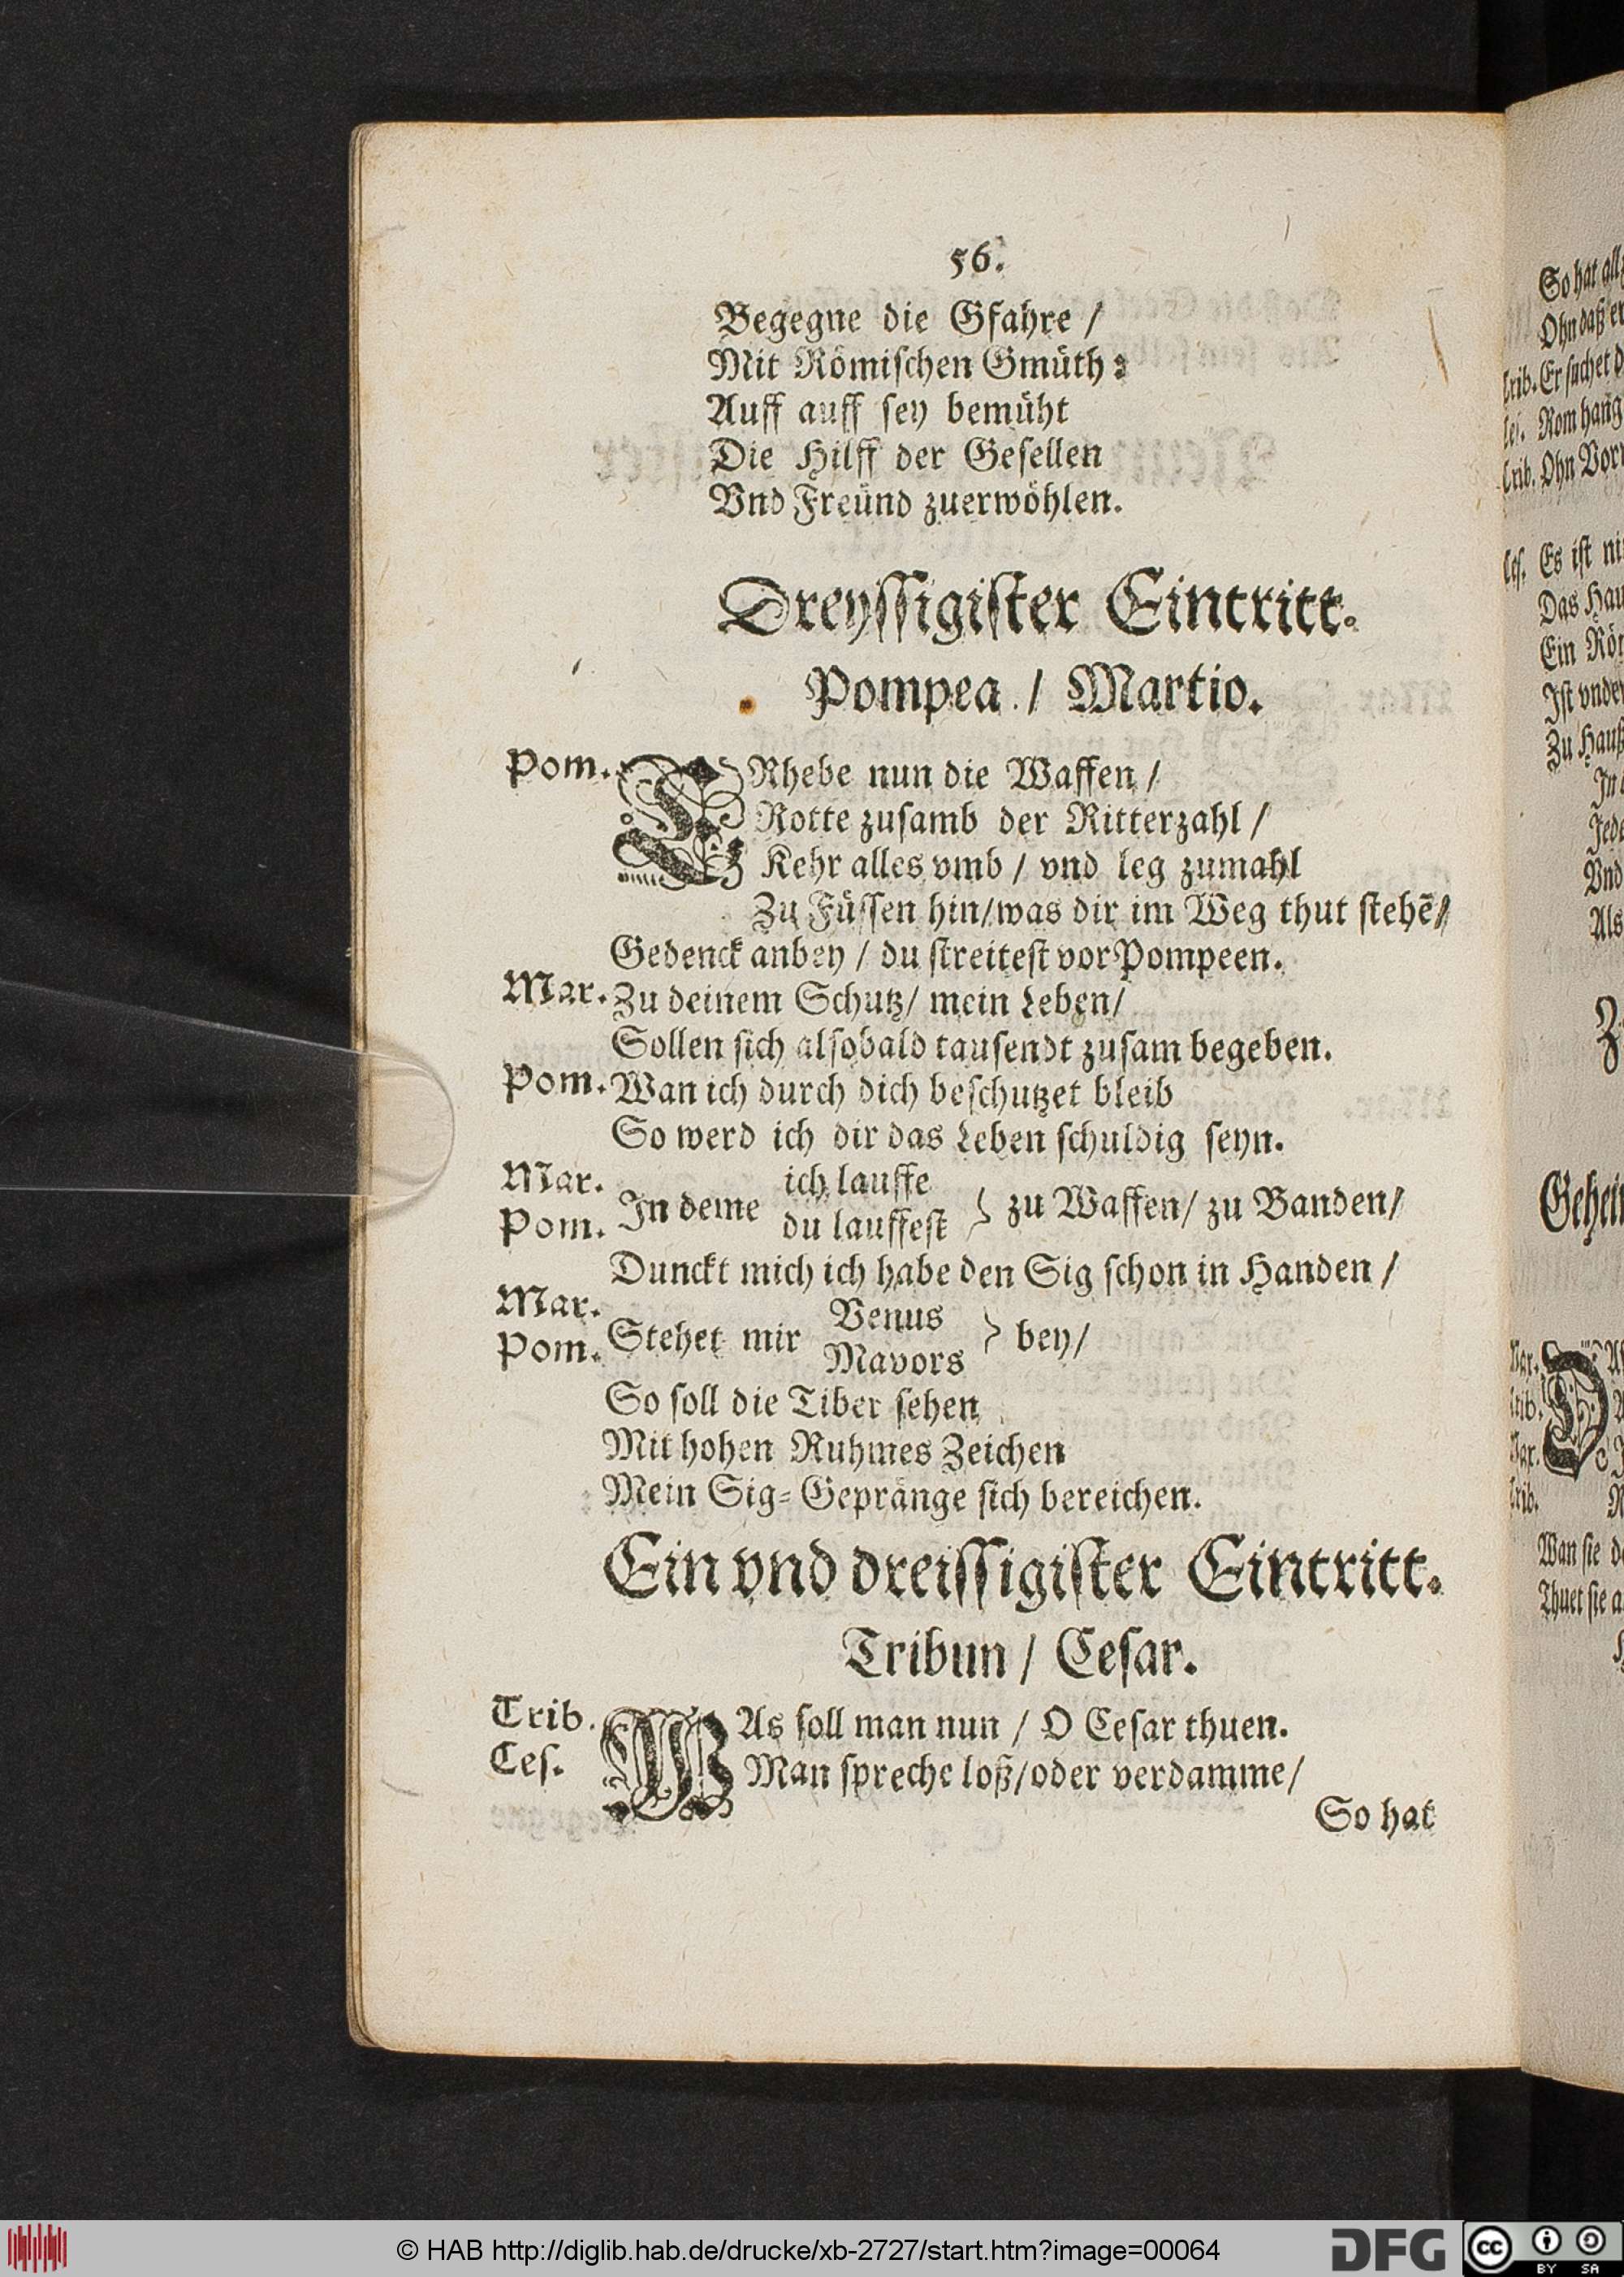 56.
Begegne die Gfahre /
Mit Römiſchen Gmüth:
Auff auff ſey bemüht
Die Hilff der Geſellen
Vnd Freünd zuerwöhlen.
Dreyſſigiſter Eintritt.
Pompea / Martio.
Pom. ERhebe nun die Waffen /
Rotte zuſamb der Ritterzahl /
Kehr alles vmb / vnd leg zumahl
Zu Füſſen hin/was dir im Weg thut ſtehẽ/
Gedenck anbey / du ſtreiteſt vor Pompeen.
Mar. Zu deinem Schutz/ mein Leben/
Sollen ſich alſobald tauſendt zuſam begeben.
Pom. Wan ich durch dich beſchutzet bleib
So werd ich dir das Leben ſchuldig ſeyn.
Mar. ich lauffe
Pom. In deme du lauffeſt } zu Waffen/ zu Banden/
Dunckt mich ich habe den Sig ſchon in Handen /
Mar. Venus
Pom. Stehet mir Mavors } bey/
So ſoll die Tiber ſehen
Mit hohen Ruhmes Zeichen
Mein Sig⸗Gepränge ſich bereichen.
Ein vnd dreiſſigiſter Eintritt.
Tribun / Ceſar.
Trib. WAs ſoll man nun / O Ceſar thuen.
Ceſ. Man ſpreche loß/oder verdamme/
So hat
So hat
Ohn daß
Er ſuchet
Rom
Trib. Ohn
Ceſ. Es iſt
Das
Ein
Iſt
Zu
Vnd
Als
Mar.
Wan ſie
Thuet ſie
© HAB http://diglib.hab.de/drucke/xb-2727/start.htm?image=00064
DFG
cc
BY SA